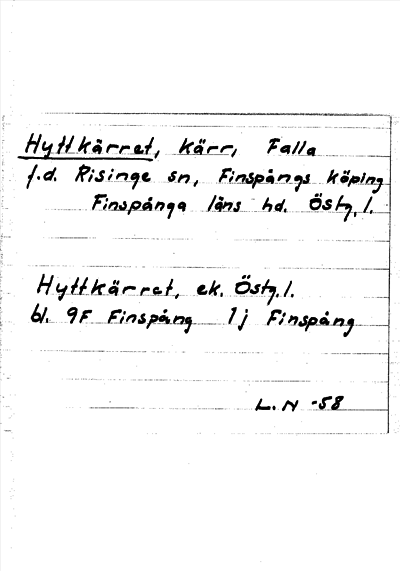 Hyttkärret, kärr, Falla
f.d. Risinge sn, Finspångs köping
Finspånga läns hd. Östg. l.
Hyttkärret, ek. Östg. l.
bl. 9F Finspång 1j Finspång
L. N -58